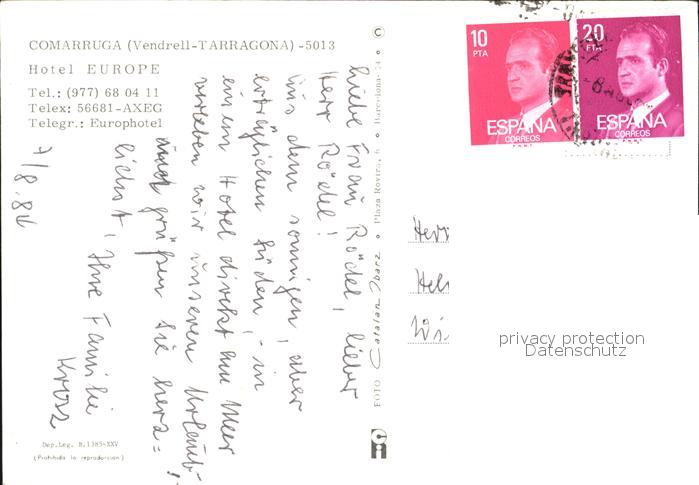 COMARRUGA (Vendrell-TARRAGONA) -5013
Hotel EUROPE
Tel.: (977) 68 04 11
Telex: 56681-AXEG
Telegr.: Europhotel
7/8.84
Liebe Frau Rödel, lieber
Herr Rödel!
Aus dem sonnigen, aber
erträglichen Süden, - in
einem Hotel direkt am Meer
verleben wir unseren Urlaub
und grüßen Sie herz=
lichst, Ihre Familie
Dep.Leg. B.1385-XXV
(Prohibida la reproducción)
FOTO Catalan Ibarz • Plaza Rovira, 6 • Barcelona-24 • C
10
PTA
ESPAÑA
CORREOS
20
PTA
ESPAÑA
CORREOS
Herr
Hel
Wi
privacy protection
Datenschutz